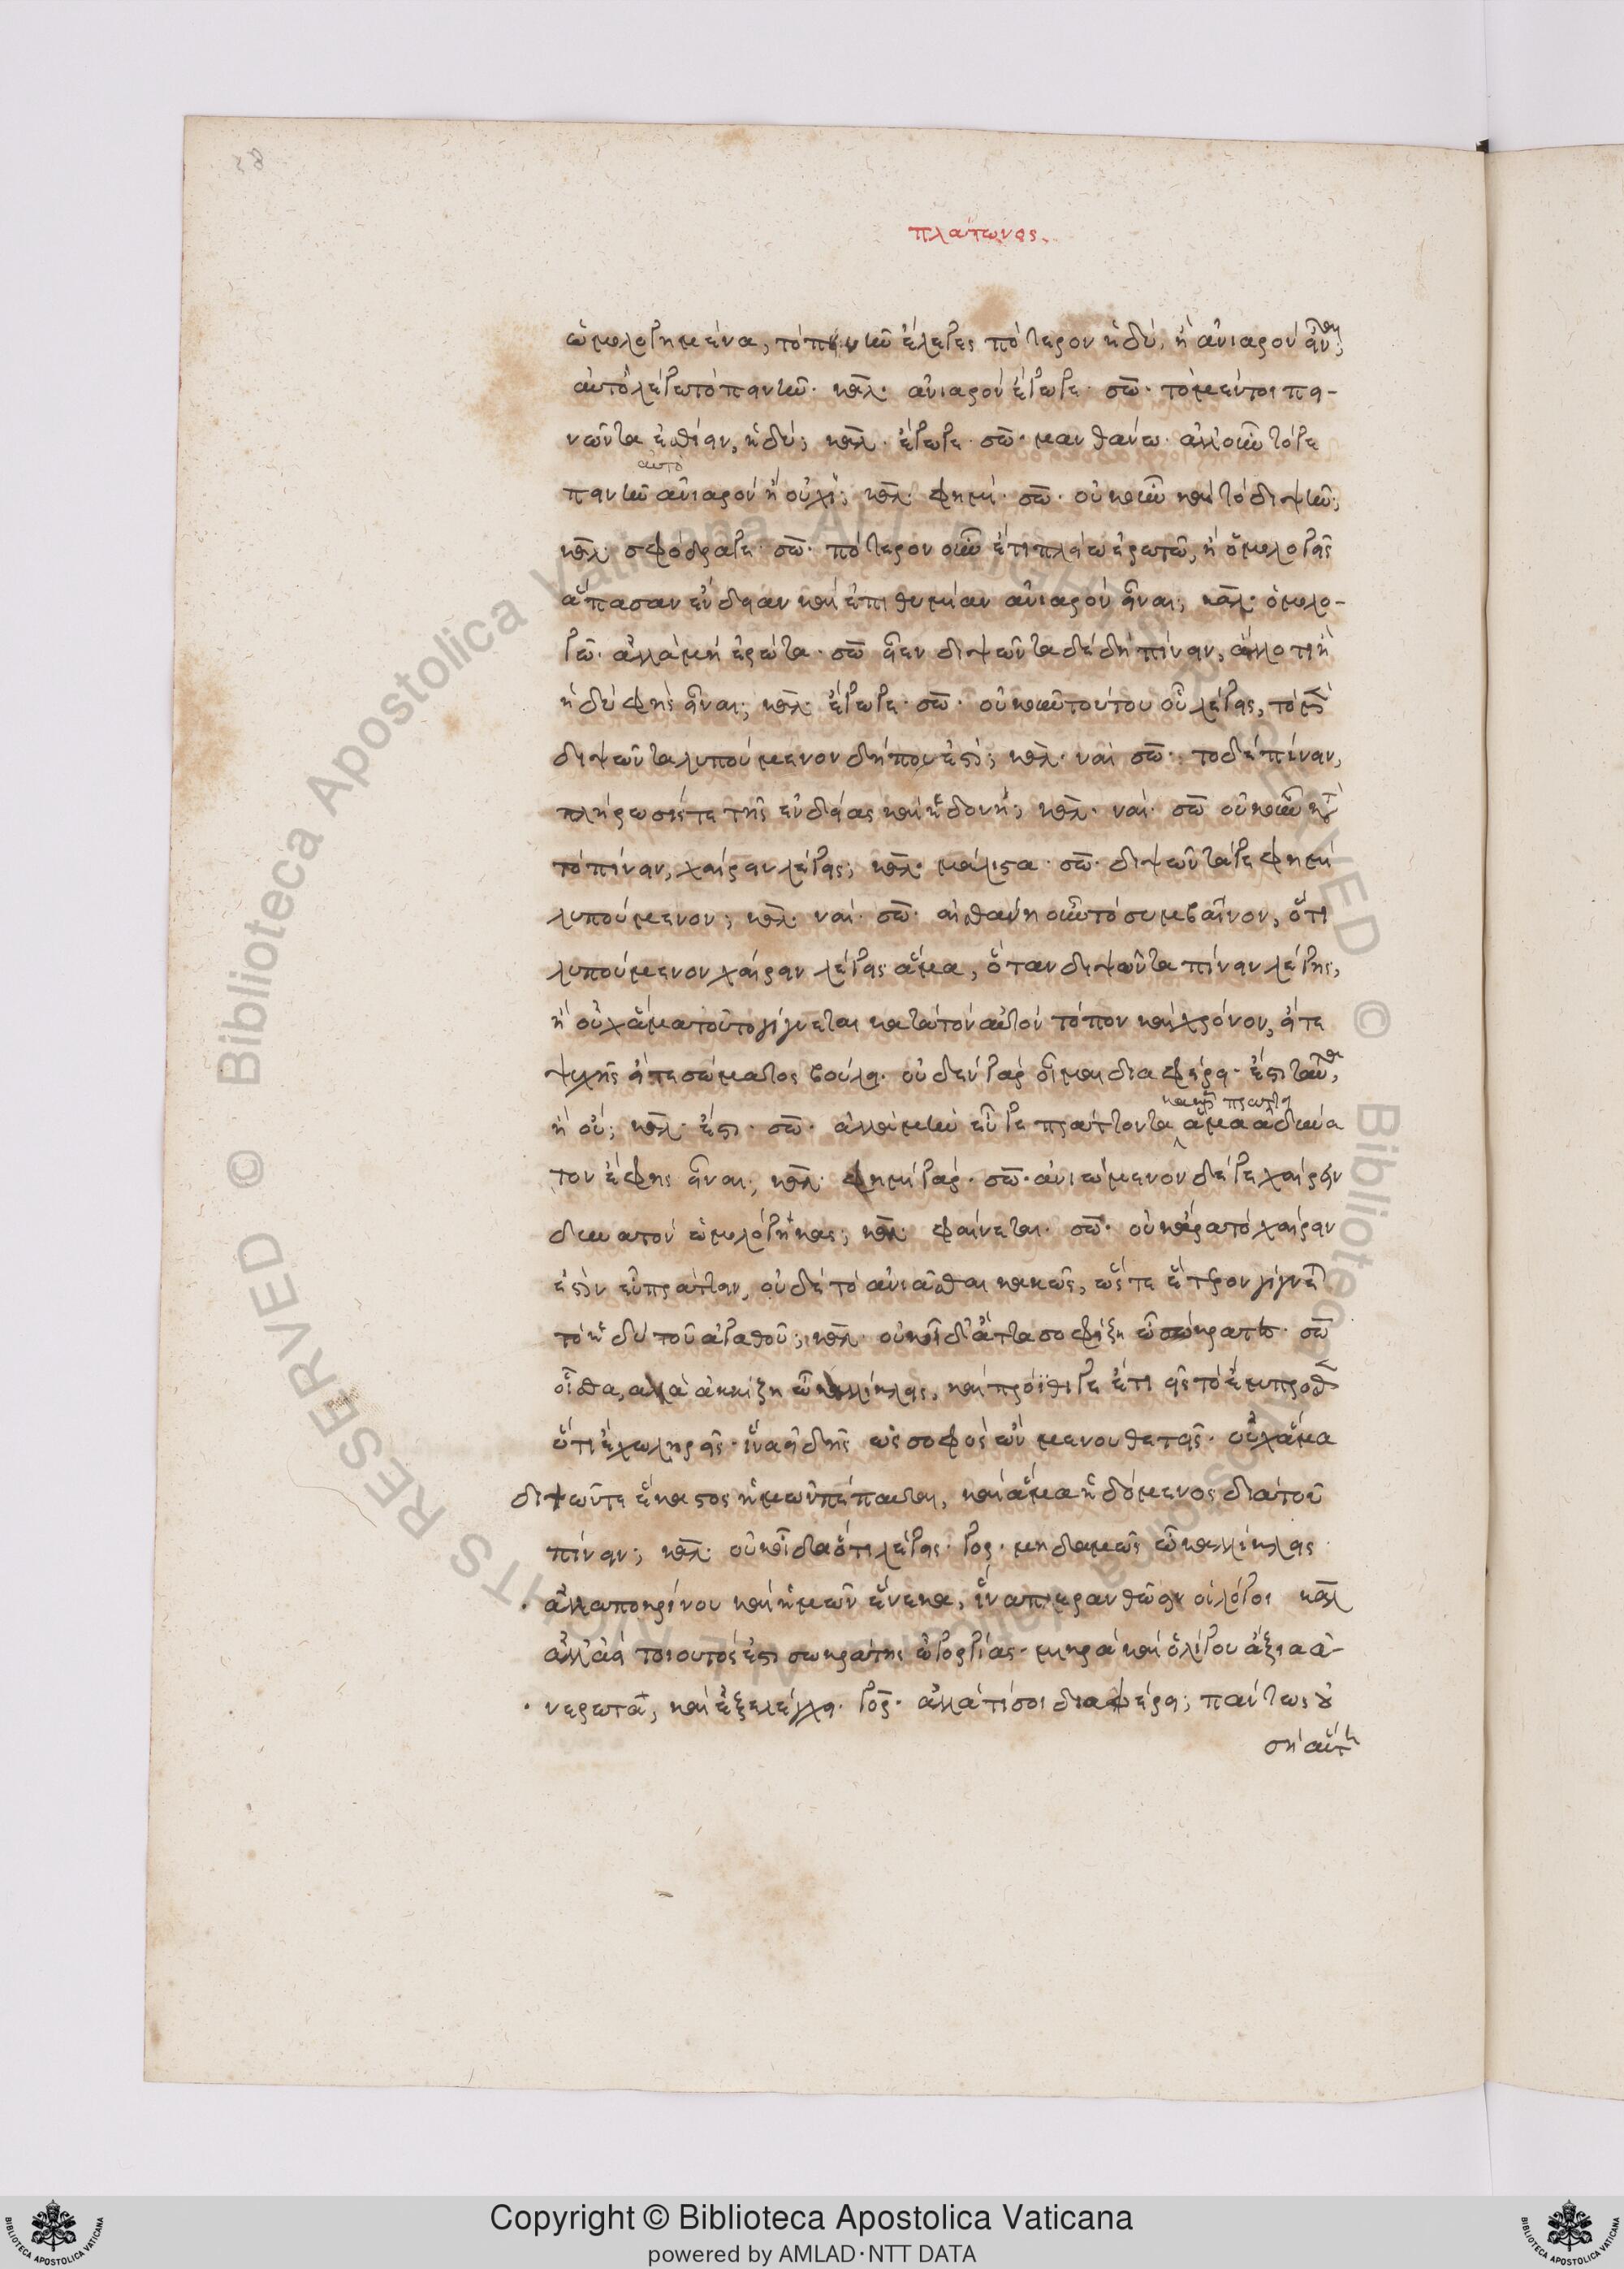 38
πλάτωνος.
ὡμολογημένα, τὸ πεινῆν ἔλεγες πότερον ἡδύ, ἢ ἀνιαρὸν εἶναι;
αὐτὸ λέγω τὸ πεινῆν. καλ. ἀνιαρὸν ἔγωγε. σω. τὸ μέντοι πει-
νῶντα ἐσθίειν, ἡδύ; καλ. ἔγωγε. σω. μανθάνω. ἀλλ' οὖν τόγε
αὐτὸ
πεινῆν ἀνιαρὸν ἢ οὐχί; καλ. φημί. σω. οὐκοῦν καὶ τὸ διψῆν;
καλ. σφόδρα γε. σω. πότερον οὖν ἔτι πλείω ἐρωτῶ, ἢ ὁμολογεῖς
ἅπασαν ἔνδειαν καὶ ἐπιθυμίαν ἀνιαρὸν εἶναι; καλ. ὁμολο-
γῶ. ἀλλὰ μὴ ἐρώτα. σω εἶεν διψῶντα δὲ δὴ πίνειν, ἄλλο τι ἢ
ἡδὺ φῂς εἶναι; καλ. ἔγωγε. σω. οὐκοῦν τούτου οὗ λέγεις, τὸ μὲν
διψῶντα λυπούμενον δήπου ἐστί; καλ. ναί σω. τὸ δὲ πίνειν,
πλήρωσίς τε τῆς ἐνδείας καὶ ἡδονή; καλ. ναί. σω οὐκοῦν κατὰ
τὸ πίνειν, χαίρειν λέγεις; καλ. μάλιστα. σω. διψῶντά γε φημὶ
λυπούμενον; καλ. ναί. σω. αἰσθάνῃ οὖν τὸ συμβαῖνον, ὅτι
λυπούμενον χαίρειν λέγεις ἅμα, ὅταν διψῶντα πίνειν λέγῃς,
ἢ οὐχ ἅμα τοῦτο γίγνεται κατὰ τὸν αὐτὸν τόπον καὶ χρόνον, εἴτε
ψυχῆς εἴτε σώματος βούλει. οὐδὲν γὰρ οἶμαι διαφέρει. ἔστι ταῦτα,
κακῶς πράττειν
ἢ οὔ; καλ. ἔστι. σω. ἀλλὰ μὴν εὖ γε πράττοντα ἅμα ἀδύνα
τον ἔφης εἶναι; καλ. φημὶ γάρ. σω. ἀνιώμενον δέ γε χαίρειν
δυνατὸν ὡμολόγηκας; καλ. φαίνεται. σω. οὐκ ἄρα τὸ χαίρειν
ἐστὶν εὖ πράττειν, οὐδὲ τὸ ἀνιᾶσθαι κακῶς, ὥστε ἕτερον γίγνεται
τὸ ἡδὺ τοῦ ἀγαθοῦ; καλ. οὐκ οἶδ' ἅττα σοφίζῃ ὦ σώκρατες. σω
οἶσθα, ἀλλὰ ἀκκίζῃ ὦ καλλίκλεις, καὶ πρόϊθί γε ἔτι εἰς τὸ ἔμπροσθεν
ὅτι ἔχω ληρεῖς. ἵνα εἰδῇς ὡς σοφὸς ὢν με νουθετεῖς. οὐχ ἅμα
διψῶν τε ἕκαστος ἡμῶν πέπαυται, καὶ ἅμα ἡδόμενος διὰ τοῦ
πίνειν; καλ. οὐκ οἶδα ὅ τι λέγεις. γορ. μηδαμῶς ὦ καλλίκλεις
ἀλλ' ἀποκρίνου καὶ ἡμῶν ἕνεκα, ἵνα περανθῶσιν οἱ λόγοι καλ
ἀλλ' ἀεὶ τοιοῦτός ἐστι σωκράτης ὦ γοργία. σμικρὰ καὶ ὀλίγου ἄξια ἀ-
νερωτᾷ, καὶ ἐξελέγχει. γορ. ἀλλὰ τί σοι διαφέρει; πάντως οὐ
σὴ αὕτη
Copyright © Biblioteca Apostolica Vaticana
powered by AMLAD·NTT DATA